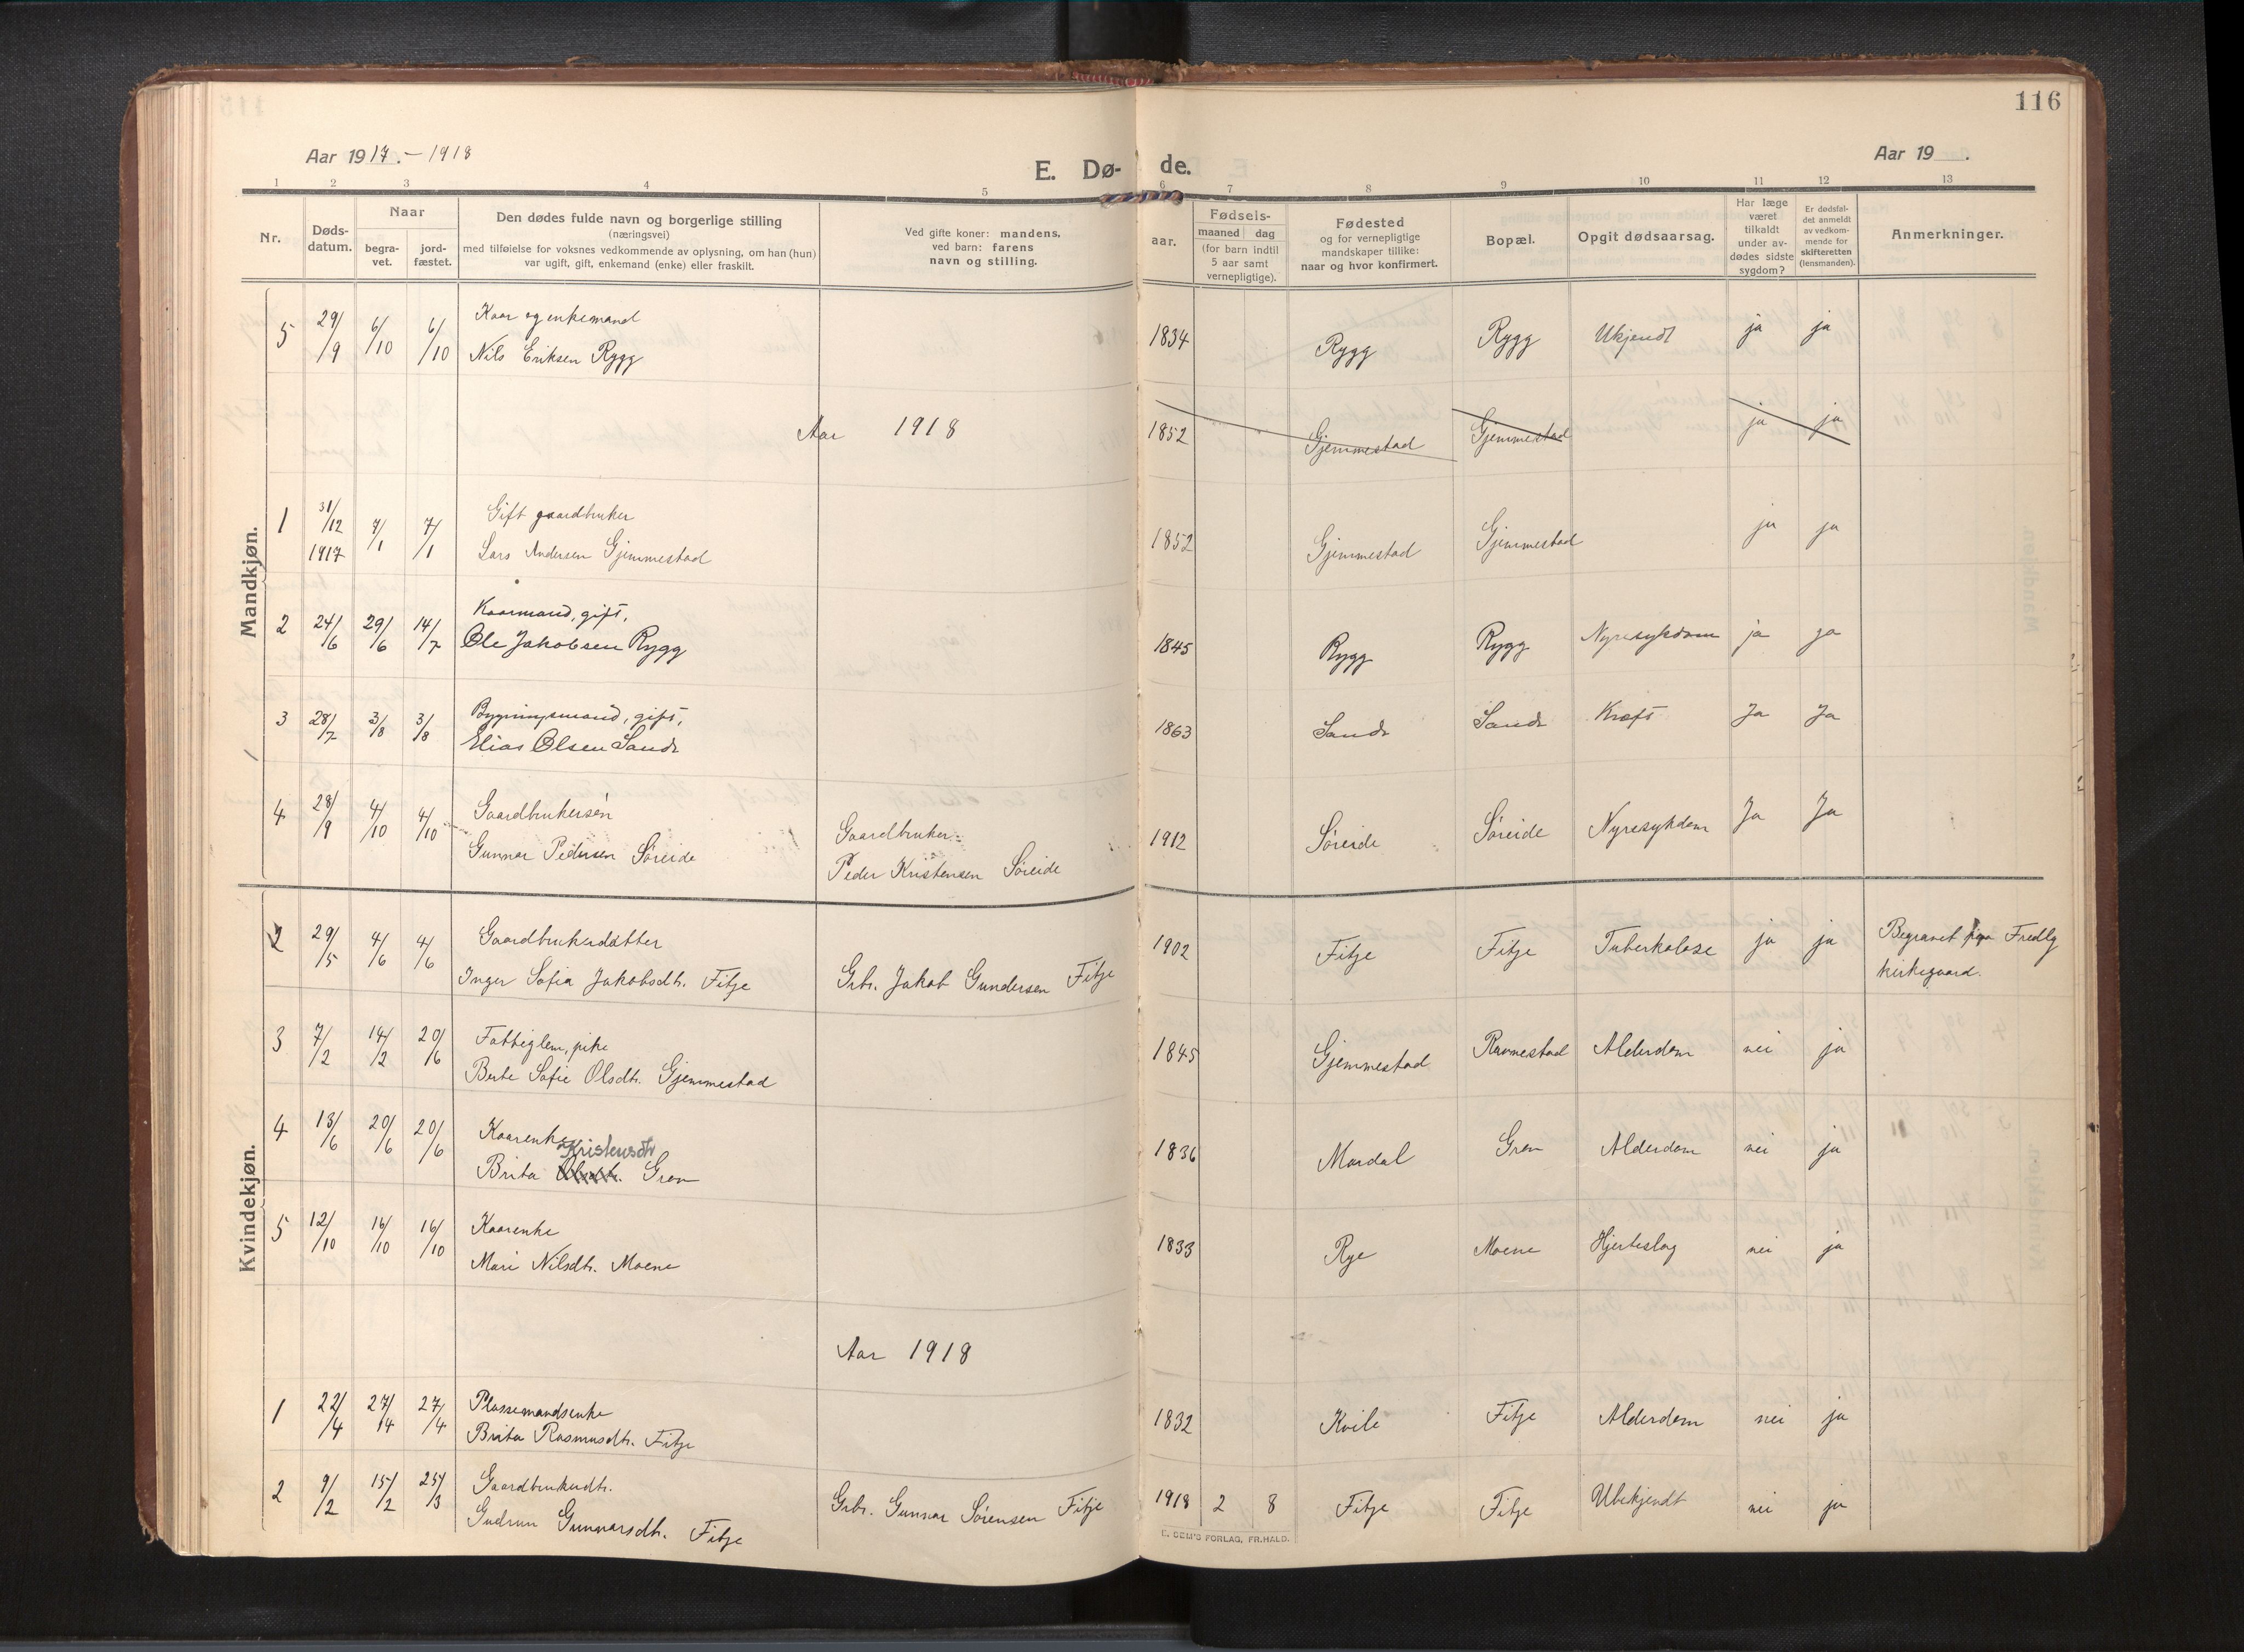 116
Aar 1917.-1918
E. Dø- de.
Aar 19 .
1 2 3 4 5 6 7 8 9 10 11 12 13
Nr.
Døds-
datum.
Naar
begra-
vet.
jord-
fæstet.
Den dødes fulde navn og borgerlige stilling
(næringsvei)
med tilføielse for voksnes vedkommende av oplysning, om han (hun)
var ugift, gift, enkemand (enke) eller fraskilt.
Ved gifte koner: mandens,
ved barn: farens
navn og stilling.
aar.
Fødsels-
maaned dag
(for barn indtil
5 aar samt
vernepligtige).
Fødested
og for vernepligtige
mandskaper tillike:
naar og hvor konfirmert.
Bopæl.
Opgit dødsaarsag.
Har læge
været
tilkaldt
under av-
dødes sidste
sygdom?
Er dødsfal-
det anmeldt
av vedkom-
mende for
skifteretten
(lensmanden).
Anmerkninger.
Mandkjøn.
5 29/9 6/10 6/10 Kaar og enkemand
Nils Eriksen Rygg 1834 Rygg Rygg Ukjendt ja ja
Aar 1918 1852 Gjemmestad Gjemmestad ja ja
1 31/12 1917 7/1 7/1 Gift gaardbruker
Lars Andersen Gjemmestad 1852 Gjemmestad Gjemmestad ja ja
2 24/6 29/6 14/7 Kaarmand, gift,
Ole Jakobsen Rygg 1845 Rygg Rygg Nyresykdom ja ja
3 28/7 3/8 3/8 Bygningsmand, gift,
Elias Olsen Sande 1863 Sande Sande Kræft Ja Ja
4 28/9 4/10 4/10 Gaardbrukersøn
Gunnar Pedersen Søreide
Gaardbruker
Peder Kristensen Søreide 1912 Søreide Søreide Nyresykdom Ja Ja
Kvindekjøn.
2 29/5 4/6 4/6 Gaardbrukerdatter
Inger Sofia Jakobsdtr. Fitje Grbr. Jakob Gundersen Fitje 1902 Fitje Fitje Tuberkolose ja ja Begravet paa Fredlg
kirkegaard.
3 7/2 14/2 20/6 Fattiglem, pike
Berte Sofie Olsdtr. Gjemmestad 1845 Gjemmestad Ravnestad Alderdom nei ja
4 13/6 20/6 20/6 Kaarenke
Kristensdtr
Brita Olsdtr. Grov 1836 Mardal Grov Alderdom nei ja
5 12/10 16/10 16/10 Kaarenke
Mari Nilsdtr. Moene 1833 Rye Moene Hjerteslag nei ja
Aar 1918
1 22/4 27/4 27/4 Plassemandsenke
Brita Rasmusdtr. Fitje 1832 Kvile Fitje Alderdom nei ja
2 9/2 15/2 25/3 Gaardbrukerdtr.
Gudrun Gunnarsdtr. Fitje Grbr. Gunnar Sørensen Fitje 1918 2 8 Fitje Fitje Ubekjendt nei ja
E. SEM'S FORLAG, FR.HALD.